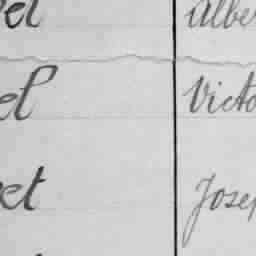 et Albe
el Victo
et Josep